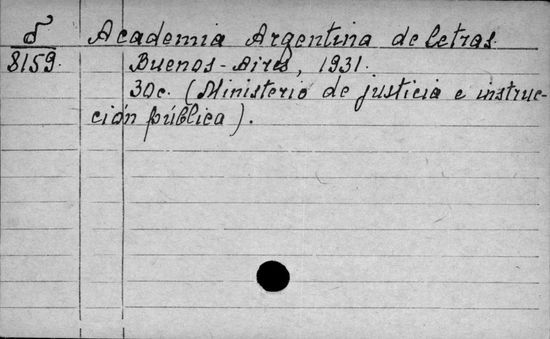 δ Academia Argentina de letras.
8159. Buenos-Aires, 1931.
30c. (Ministerio de justicia e instruc-
ción pública).